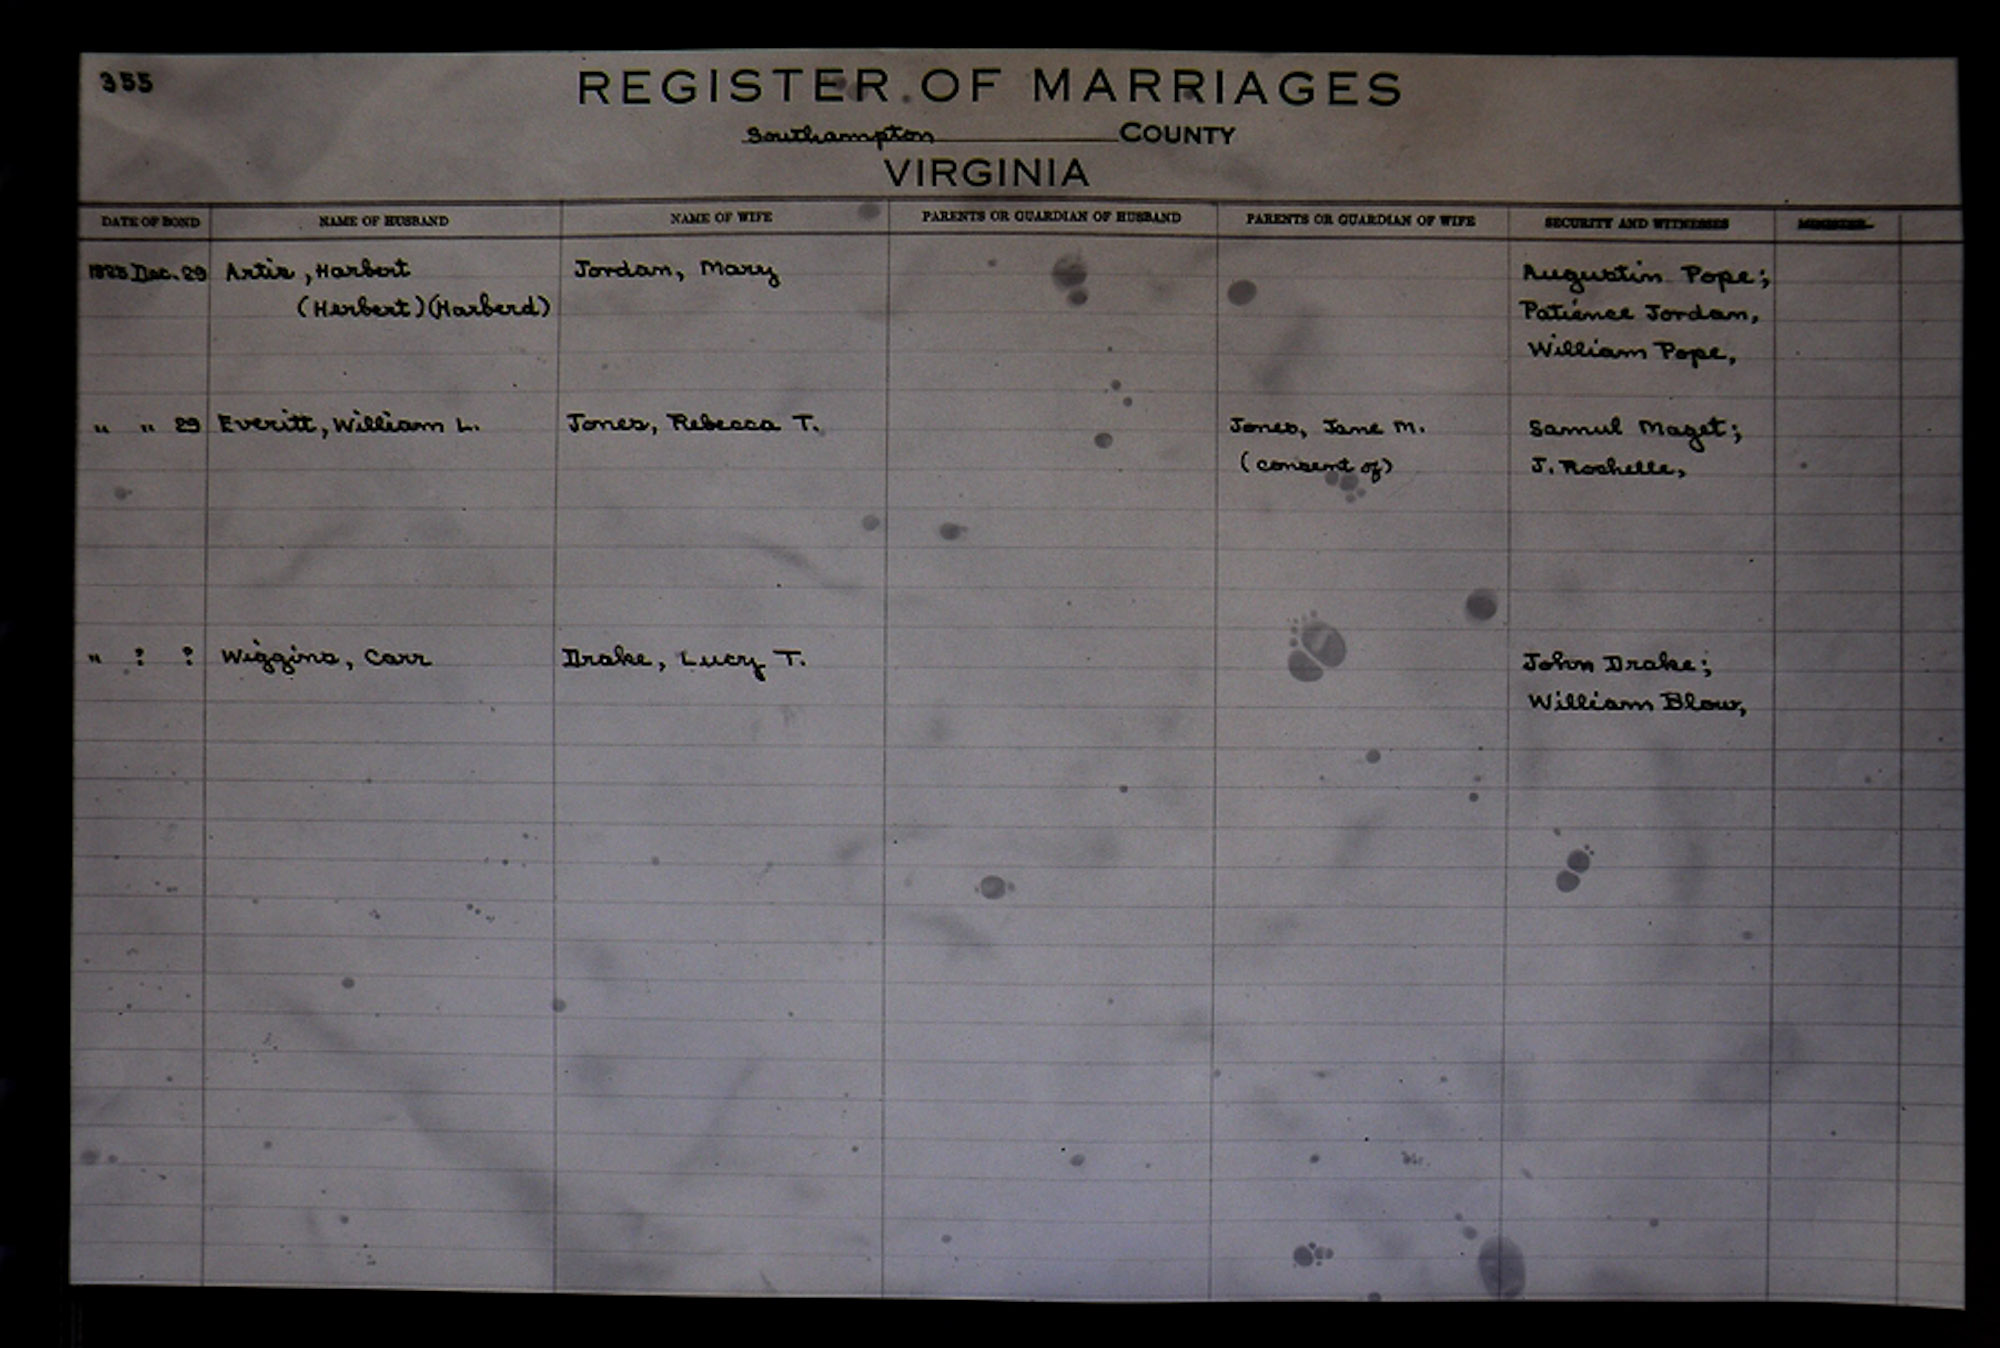 355
REGISTER OF MARRIAGES
Southampton COUNTY
VIRGINIA
DATE OF BOND NAME OF HUSBAND NAME OF WIFE PARENTS OR GUARDIAN OF HUSBAND PARENTS OR GUARDIAN OF WIFE SECURITY AND WITNESSES MINISTER
1825 Dec. 29 Artis, Harbert Jordan, Mary Augustin Pope;
(Herbert)(Harberd) Patience Jordan,
William Pope,
" " 29 Everitt, William L. Jones, Rebecca T. Jones, Jane M. Samul Maget;
(consent of) J. Rochelle,
" ? ? Wiggins, Carr Drake, Lucy T. John Drake;
William Blow,